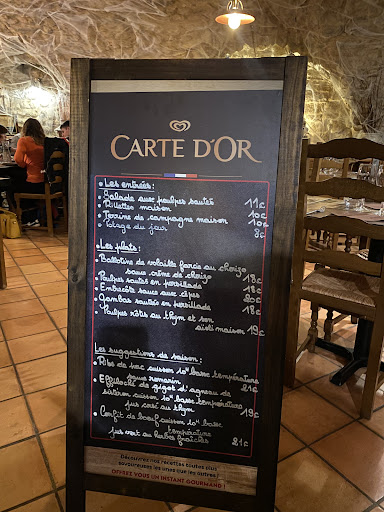 CARTE D'OR
• Les entrées :
• Salade aux poulpes sautés 11€
• Rillettes maison 10€
• Terrine de campagne maison 10€
• Potage du jour 8€
• Les plats :
• Ballotine de volaille farcie au chorizo
sauce crème de chorizo 18€
• Poulpes sautés en persillade 18€
• Entrecôte sauce aux cèpes 20€
• Gambas sautés en persillade 18€
• Poulpe rôti au thym et son
maison 19€
Les suggestions de saison :
• Ribs de porc cuisson basse température
sauce romarin 21€
• Effiloché de gigot d'agneau de
sisteron cuisson basse température
jus corsé au thym 19€
• Confit de boeuf cuisson basse
température
jus vert au herbes fraîches 21€
Découvrez nos recettes toutes plus
savoureuses les unes que les autres !
OFFREZ VOUS UN INSTANT GOURMAND !